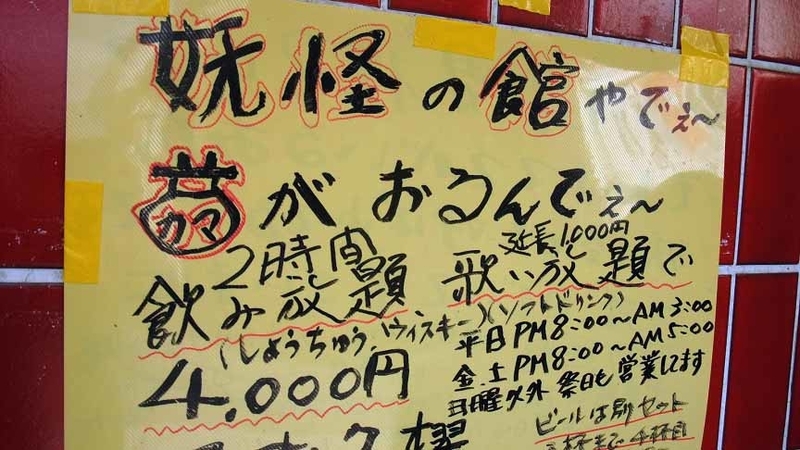 妖怪の館やでぇ～
カマがおるんでぇ～
2時間
飲み放題
延長1,000円
歌い放題で
(しょうちゅう、ウィスキー)(ソフトドリンク)
4,000円
平日PM8:00～AM3:00
金.土PM8:00～AM5:00
日曜以外 祭日も営業してます
ビールは別セット